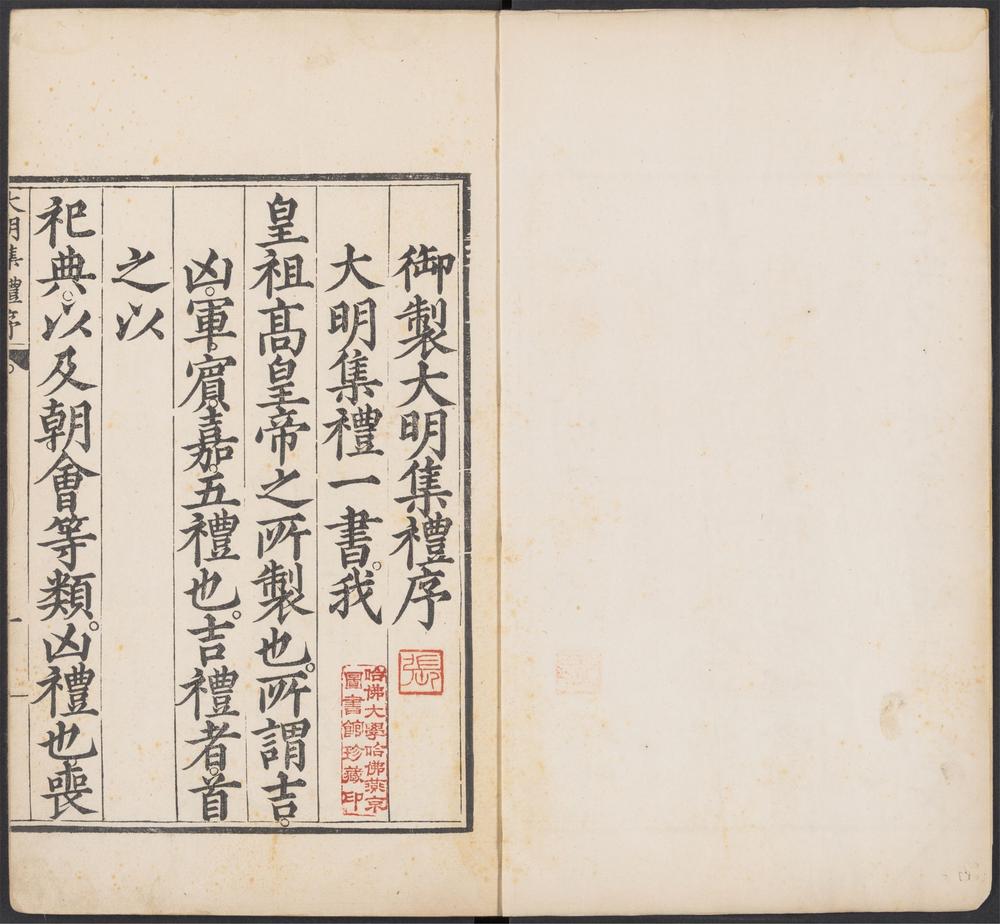 御製大明集禮序
大明集禮一書。我
皇祖高皇帝之所製也。所謂吉。
凶。軍。賓。嘉。五禮也。吉禮者。首
之以
祀典。以及朝會等類。凶禮也喪
大明集禮序
一
張
哈佛大學哈佛燕京
圖書館珍藏印